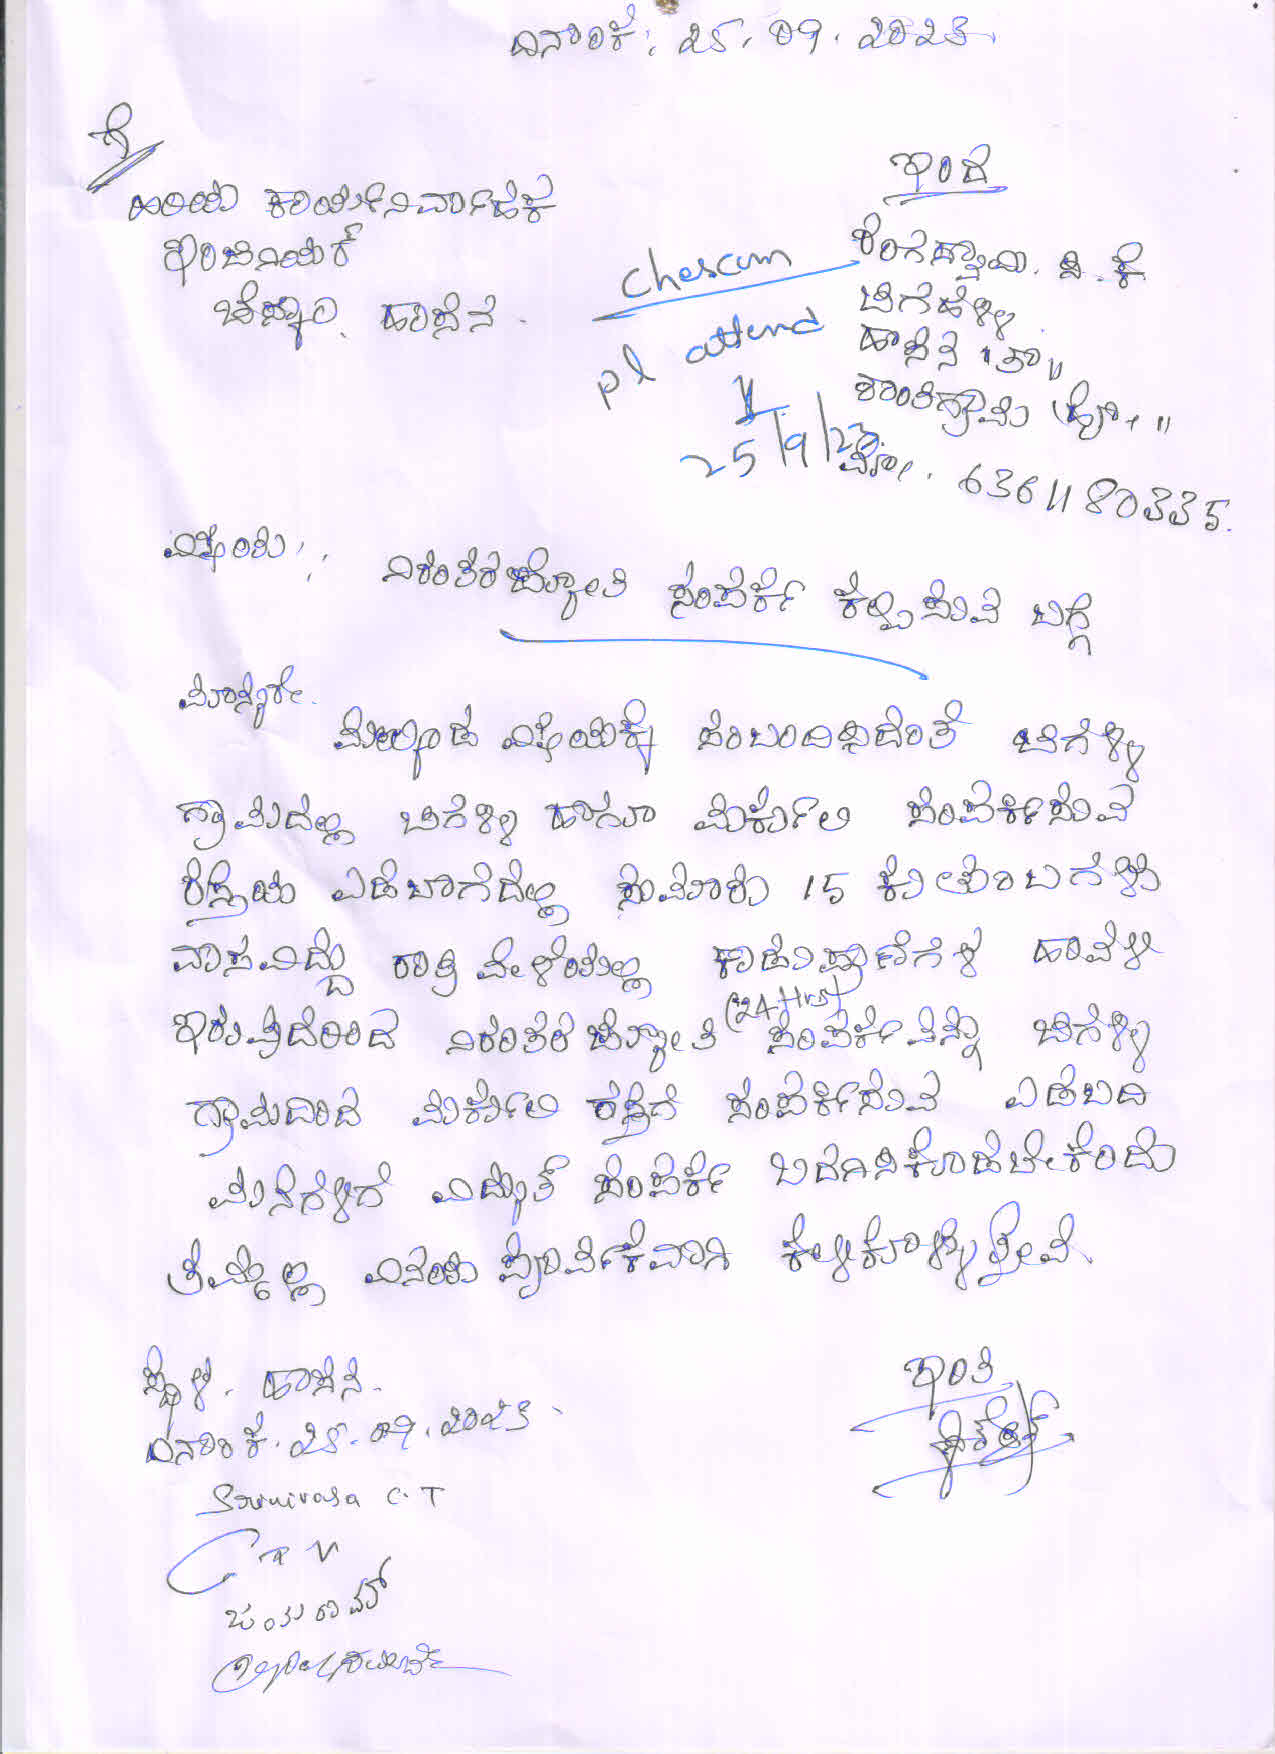 ದಿನಾಂಕ: 25.09.2023.
ಗೆ
ಹಿರಿಯ ಕಾರ್ಯನಿರ್ವಾಹಕ
ಇಂಜಿನಿಯರ್
ಚೆಸ್ಕಾಂ, ಹಾಸನ.
ಇಂದ
ರಂಗಸ್ವಾಮಿ. ಸಿ.ಕೆ
ಚಿಗಹಳ್ಳಿ
ಹಾಸನ ತಾ॥
ಶಾಂತಿಗ್ರಾಮ ಹೋ.॥
ಮೊ. 6361180335.
Chescom
pl attend
25/9/23
ವಿಷಯ:: ನಿರಂತರಜ್ಯೋತಿ ಸಂಪರ್ಕ ಕಲ್ಪಿಸುವ ಬಗ್ಗೆ
ಮಾನ್ಯರೇ.
ಮೇಲ್ಕಂಡ ವಿಷಯಕ್ಕೆ ಸಂಬಂದಿಸಿದಂತೆ ಚಿಗಳ್ಳಿ
ಗ್ರಾಮದಲ್ಲಿ ಚಿಗಳ್ಳಿ ಹಾಗೂ ಮರ್ಕುಲಿ ಸಂಪರ್ಕಿಸುವ
ರಸ್ತೆಯ ಎಡಬಾಗದಲ್ಲಿ ಸುಮಾರು 15 ಕುಟುಂಬಗಳು
ವಾಸವಿದ್ದು ರಾತ್ರಿ ವೇಳೆಯಲ್ಲಿ ಕಾಡುಪ್ರಾಣಿಗಳ ಹಾವಳಿ
ಇರುವುದರಿಂದ ನಿರಂತರ ಜ್ಯೋತಿ (24 Hrs) ಸಂಪರ್ಕವನ್ನು ಚಿಗಳ್ಳಿ
ಗ್ರಾಮದಿಂದ ಮರ್ಕುಲಿ ರಸ್ತೆಗೆ ಸಂಪರ್ಕಿಸುವ ಎಡಬದಿ
ಮನೆಗಳಿಗೆ ವಿದ್ಯುತ್ ಸಂಪರ್ಕ ಒದಗಿಸಿಕೊಡಬೇಕೆಂದು
ತಮ್ಮಲ್ಲಿ ವಿನಯ ಪೂರ್ವಕವಾಗಿ ಕೇಳಿಕೊಳ್ಳುತ್ತೇವೆ.
ಸ್ಥಳ. ಹಾಸನ.
ದಿನಾಂಕ. 25.09.2023.
ಇಂತಿ
Srinivasa C.T
ಜಯರಾಮ್